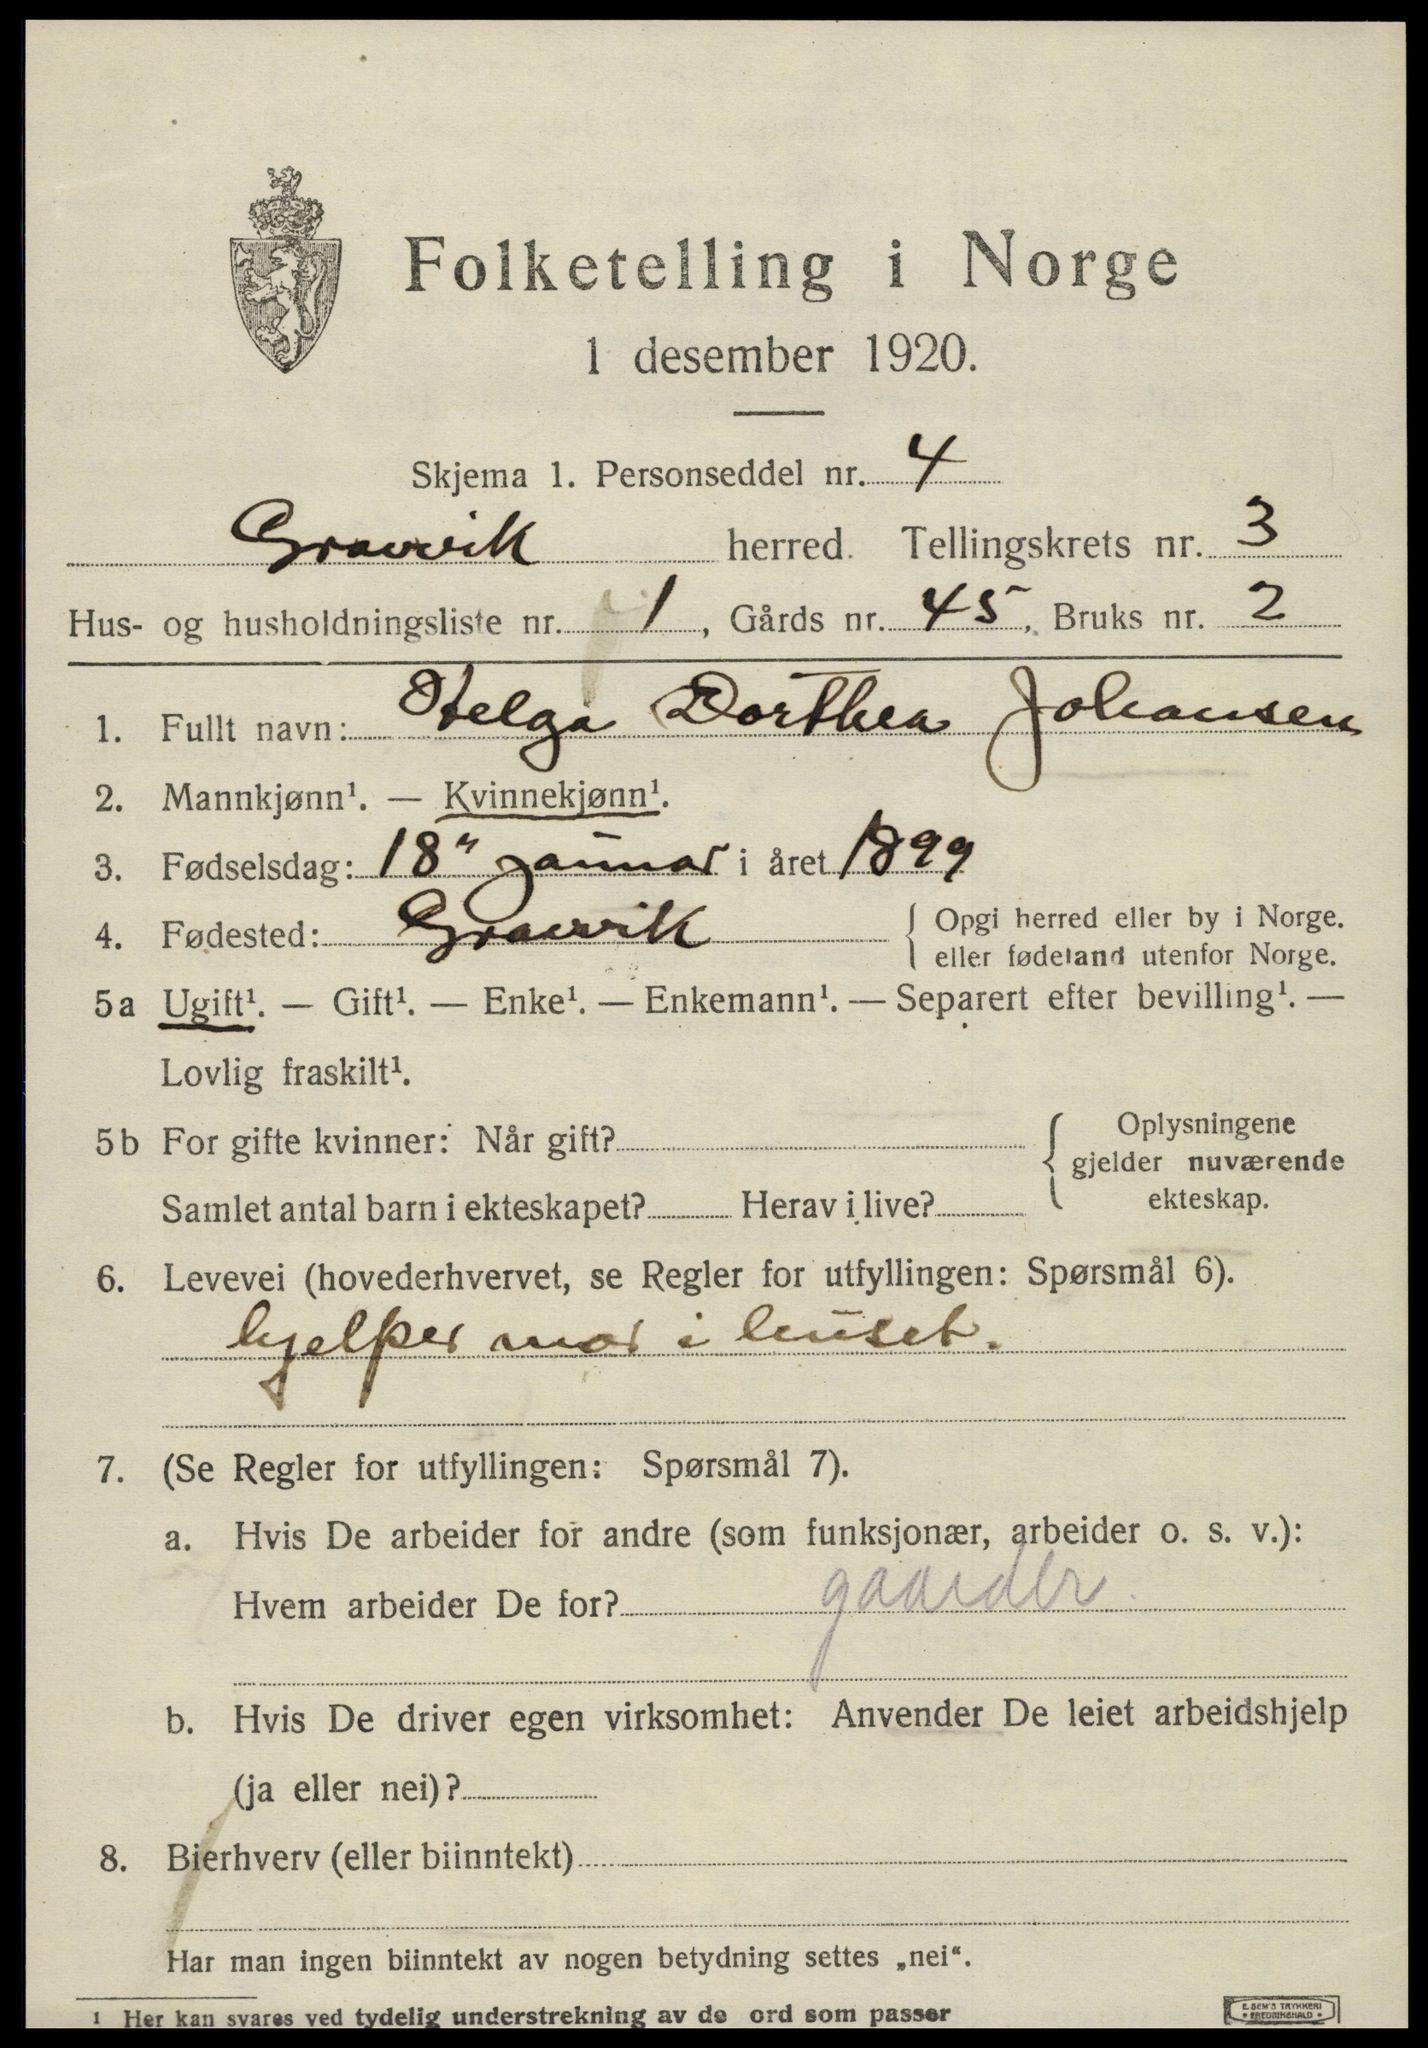 Folketelling i Norge
1 desember 1920.
Skjema 1. Personseddel nr. 4
Gravvik herred. Tellingskrets nr. 3
Hus- og husholdningsliste nr. 1, Gårds nr. 45, Bruks nr. 2
1. Fullt navn: Helga Dorthea Johansen
2. Mannkjønn¹. — Kvinnekjønn¹.
3. Fødselsdag: 18" januar i året 1899
4. Fødested: Gravvik { Opgi herred eller by i Norge.
eller fødeland utenfor Norge.
5a Ugift¹. — Gift¹. — Enke¹. — Enkemann¹. — Separert efter bevilling¹. —
Lovlig fraskilt¹.
5b For gifte kvinner: Når gift? { Oplysningene
gjelder nuværende
Samlet antal barn i ekteskapet? Herav i live? ekteskap.
6. Levevei (hovederhvervet, se Regler for utfyllingen: Spørsmål 6).
hjelper mor i huset.
7. (Se Regler for utfyllingen: Spørsmål 7).
a. Hvis De arbeider for andre (som funksjonær, arbeider o. s. v.):
Hvem arbeider De for? gaardbr
b. Hvis De driver egen virksomhet: Anvender De leiet arbeidshjelp
(ja eller nei)?
8. Bierhverv (eller biinntekt)
Har man ingen biinntekt av nogen betydning settes „nei“.
1 Her kan svares ved tydelig understrekning av de ord som passer
E. SEM'S TRYKKERI
• FREDRIKSHALD •